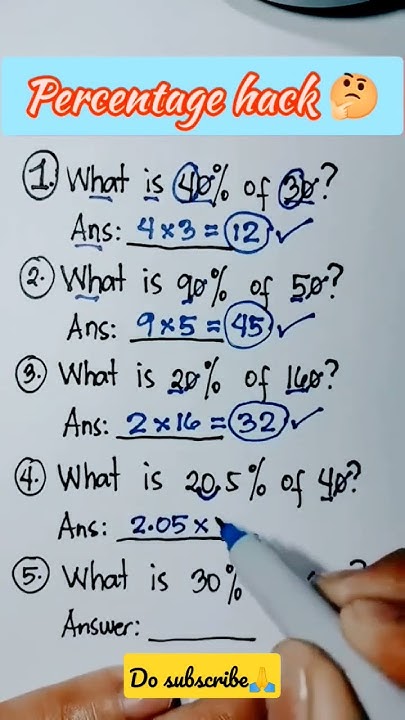 Percentage hack 🤔
1. What is 40% of 30?
Ans: 4 × 3 = 12 ✓
2. What is 90% of 50?
Ans: 9 × 5 = 45 ✓
3. What is 20% of 160?
Ans: 2 × 16 = 32 ✓
4. What is 20.5% of 40?
Ans: 2.05 ×
5. What is 30% ?
Answer:
Do subscribe🙏